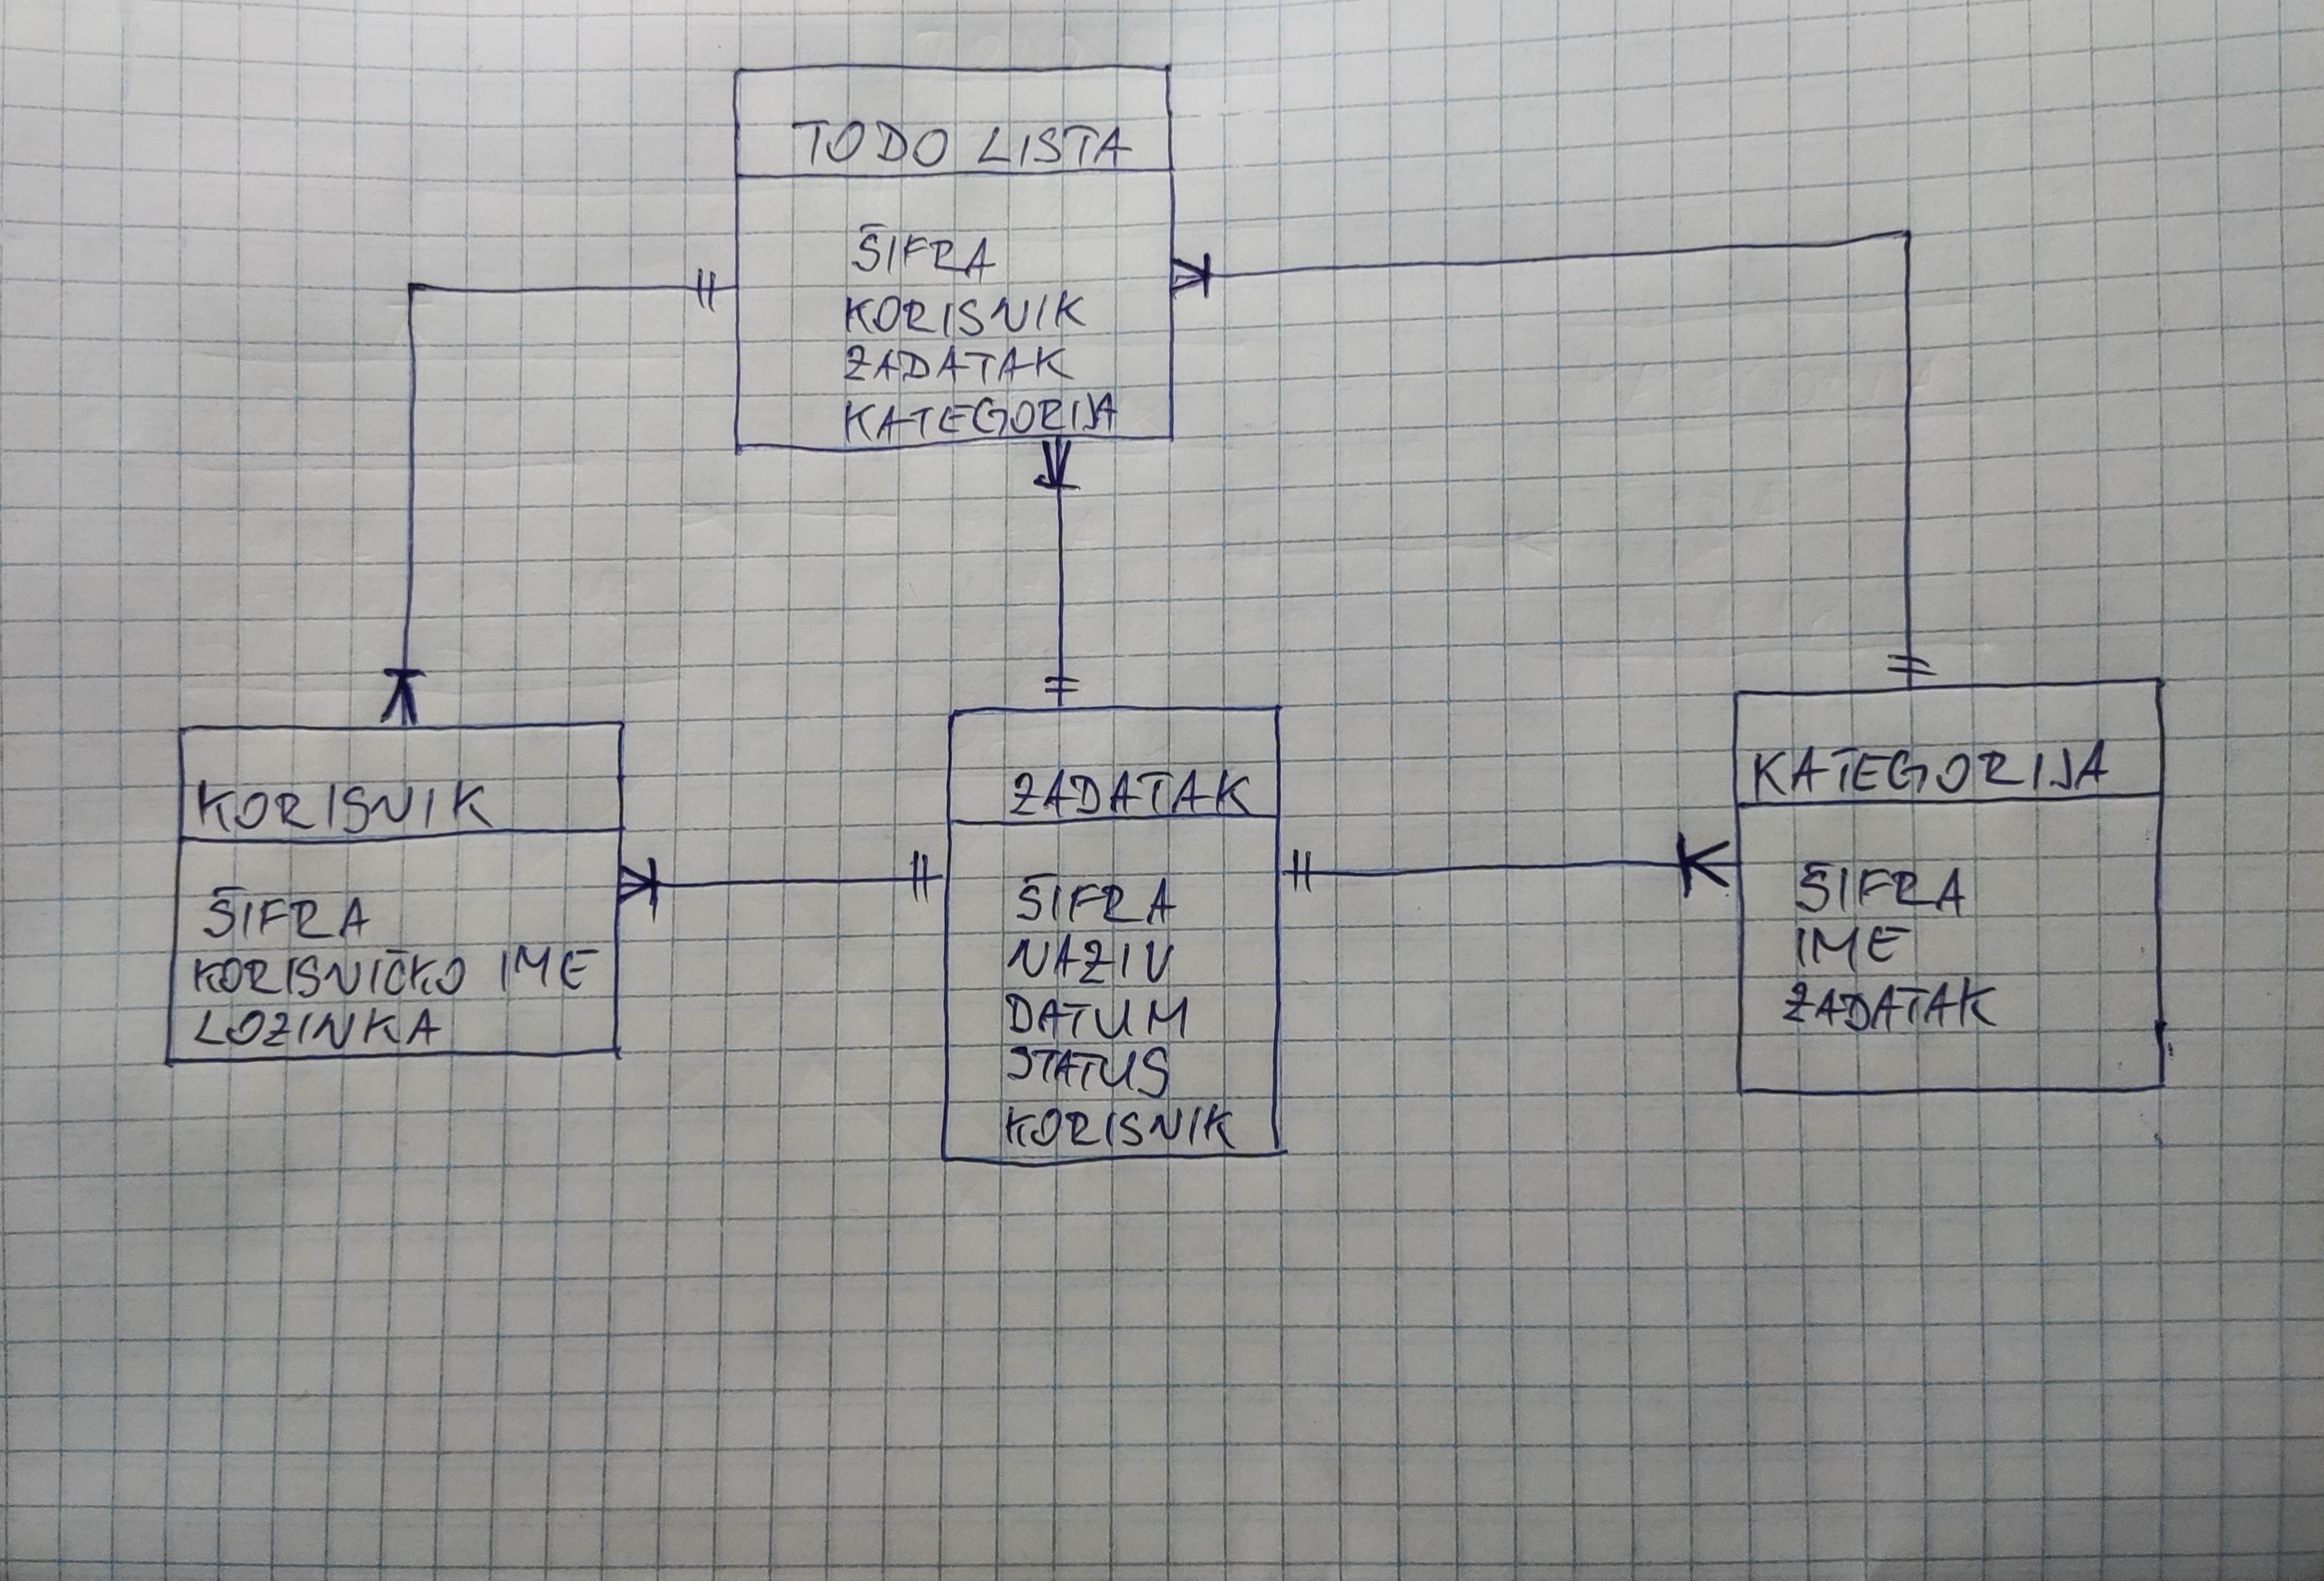 TODO LISTA
ŠIFRA
KORISNIK
ZADATAK
KATEGORIJA
KORISNIK
ŠIFRA
KORISNIČKO IME
LOZINKA
ZADATAK
ŠIFRA
NAZIV
DATUM
STATUS
KORISNIK
KATEGORIJA
ŠIFRA
IME
ZADATAK